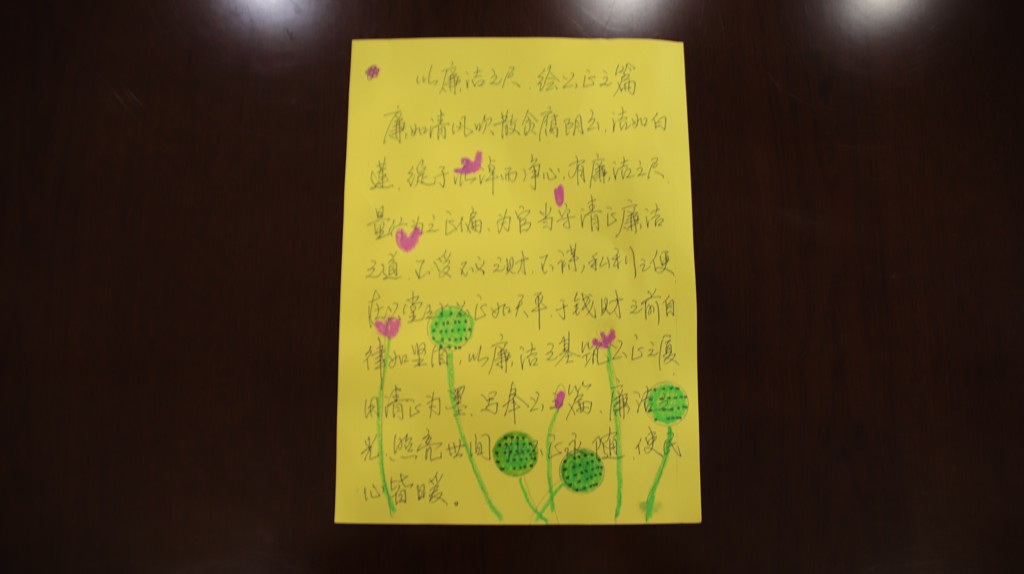 以廉洁之尺、绘公正之篇
廉如清风吹散贪腐阴云，洁如白
莲、绽于 而净心，有廉洁之尺
量行为之正偏，为官当守清正廉洁
之道，不受不义之财，不谋私利之便
在公堂之 公正如天平，于钱财之前自
律如坚 ，以廉洁之基筑公正之厦
用清正为墨，写奉公之篇，廉洁之
光，照亮世间， 公正永随，使民
心皆暖。